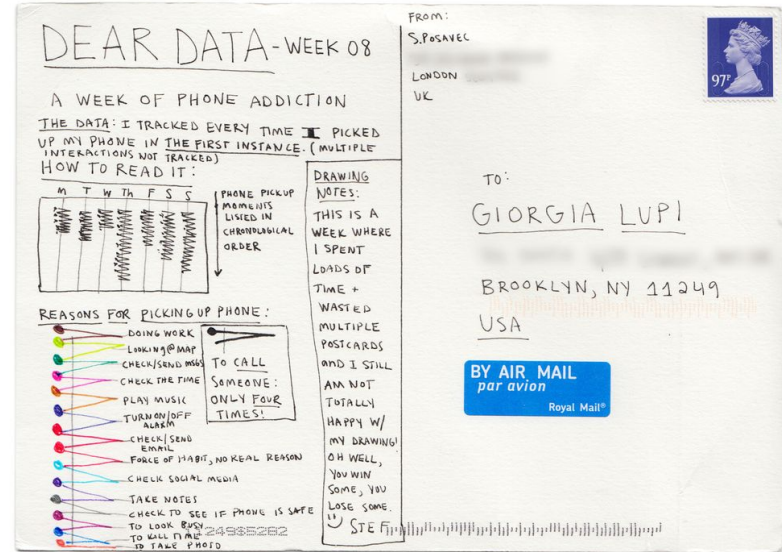 DEAR DATA - WEEK 08
A WEEK OF PHONE ADDICTION
THE DATA: I TRACKED EVERY TIME I PICKED
UP MY PHONE IN THE FIRST INSTANCE. (MULTIPLE
INTERACTIONS NOT TRACKED)
HOW TO READ IT:
M T W Th F S S
PHONE PICKUP
MOMENTS
LISTED IN
CHRONOLOGICAL
ORDER
REASONS FOR PICKING UP PHONE:
DOING WORK
LOOKING@MAP
CHECK/SEND MSGS
CHECK THE TIME
PLAY MUSIC
TURN ON/OFF
ALARM
CHECK/SEND
EMAIL
FORCE OF HABIT, NO REAL REASON
CHECK SOCIAL MEDIA
TAKE NOTES
CHECK TO SEE IF PHONE IS SAFE
TO LOOK BUSY
TO KILL TIME
TO TAKE PHOTO
TO CALL
SOMEONE:
ONLY FOUR
TIMES!
DRAWING
NOTES:
THIS IS A
WEEK WHERE
I SPENT
LOADS OF
TIME +
WASTED
MULTIPLE
POSTCARDS
and I STILL
AM NOT
TOTALLY
HAPPY W/
MY DRAWING!
OH WELL,
YOU WIN
SOME, YOU
LOSE SOME.
STEF
1124985282
FROM:
S.POSAVEC
LONDON
UK
97P
TO:
GIORGIA LUPI
BROOKLYN, NY 11249
USA
BY AIR MAIL
par avion
Royal Mail®